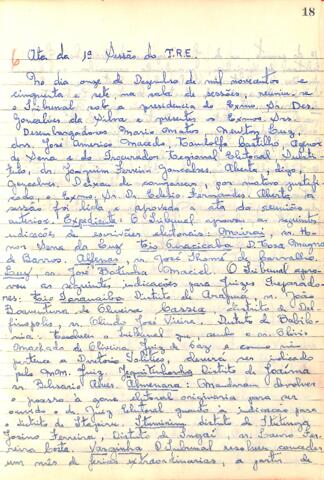 18
6 Ata da 1ª Sessão do T.R.E.
No dia onze de Dezembro de mil novecentos e
cinquenta e sete, na sala de sessões, reuniu-se
o Tribunal sob a presidencia do Exmo. Sr. Des.
Gonçalves da Silva e presentes os Exmos. Srs.
Desembargadores Mario Matos, Newton Luz,
drs. José Americo Macedo, Randolfo Castilho, Agenor
de Sena e do Procurador Regional Eleitoral Substi-
tuto, dr. Joaquim Ferreira Gonçalves. Aberta, digo
Gonçalves. Deixou de comparecer, por motivo justifi-
cado, o Exmo. Sr. Dr. Fernandes. Aberta a
sessão foi lida e aprovada a ata da reunião
anterior. Expediente: O Tribunal aprovou as seguintes
indicações de escrivães eleitorais: sr. Ho-
nor Sena da Luz Rio Piracicaba, D. Rosa Magna
de Barros. Alfenas, sr. José Thomé de Carvalho.
Luz, sr. José Botinha Maciel. O Tribunal apro-
vou as seguintes indicações para Juizes Prepara-
dores: Rio Paranaiba Distrito de Arapuá, sr. João
Boaventura de Oliveira Cassia, distrito de Del-
finopolis, sr. Olindo José Vieira. Distrito de Babilo-
nia: sendo o sr. Olivio
Machado de Oliveira, Juiz de Paz e como não
pertence a Diretorio Politico, deverá ser indicado
pelo MM. Juiz. Jequitinhonha Distrito de Joaíma
sr. Belisario Alves. Almenara: Mandaram devolver
o processo à zona eleitoral originaria para ser
ouvido o dr. Juiz Eleitoral quanto à indicação para
o distrito de Itumirim, distrito de Itutinga
Josino Ferreira, Distrito de Ingaí, sr. Lauro Fer-
reira Costa. Varginha O Tribunal resolveu conceder
um mês de férias extraordinarias, a partir de